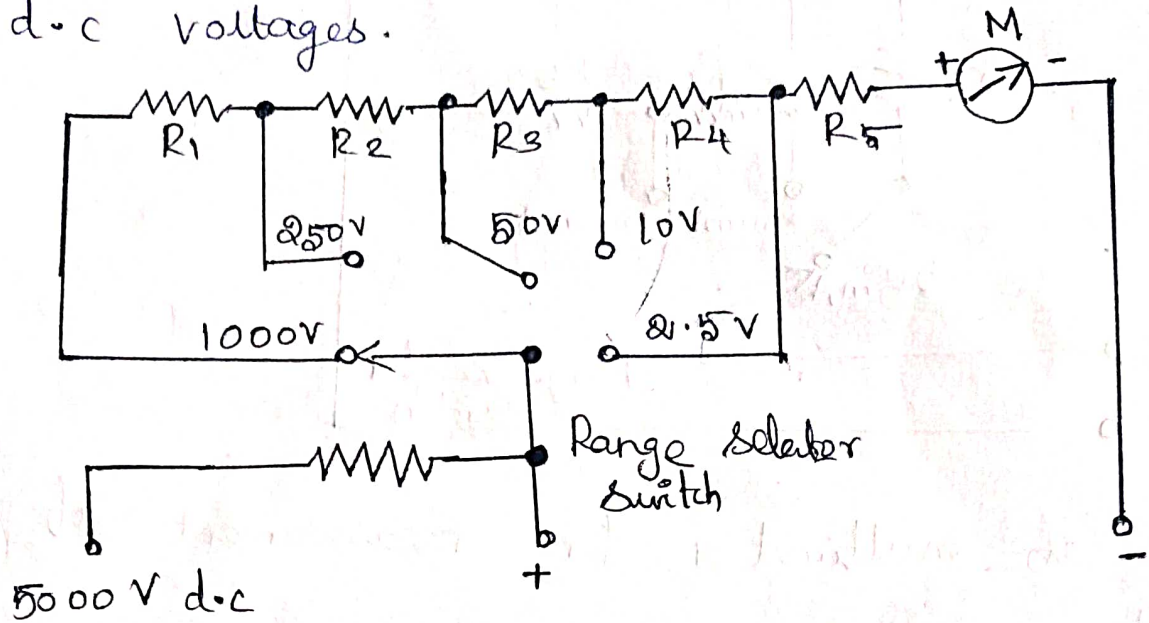 d.c voltages.
M
+ -
R1 R2 R3 R4 R5
250V 50V 10V
1000V 2.5V
Range selector
switch
+ -
5000 V d.c